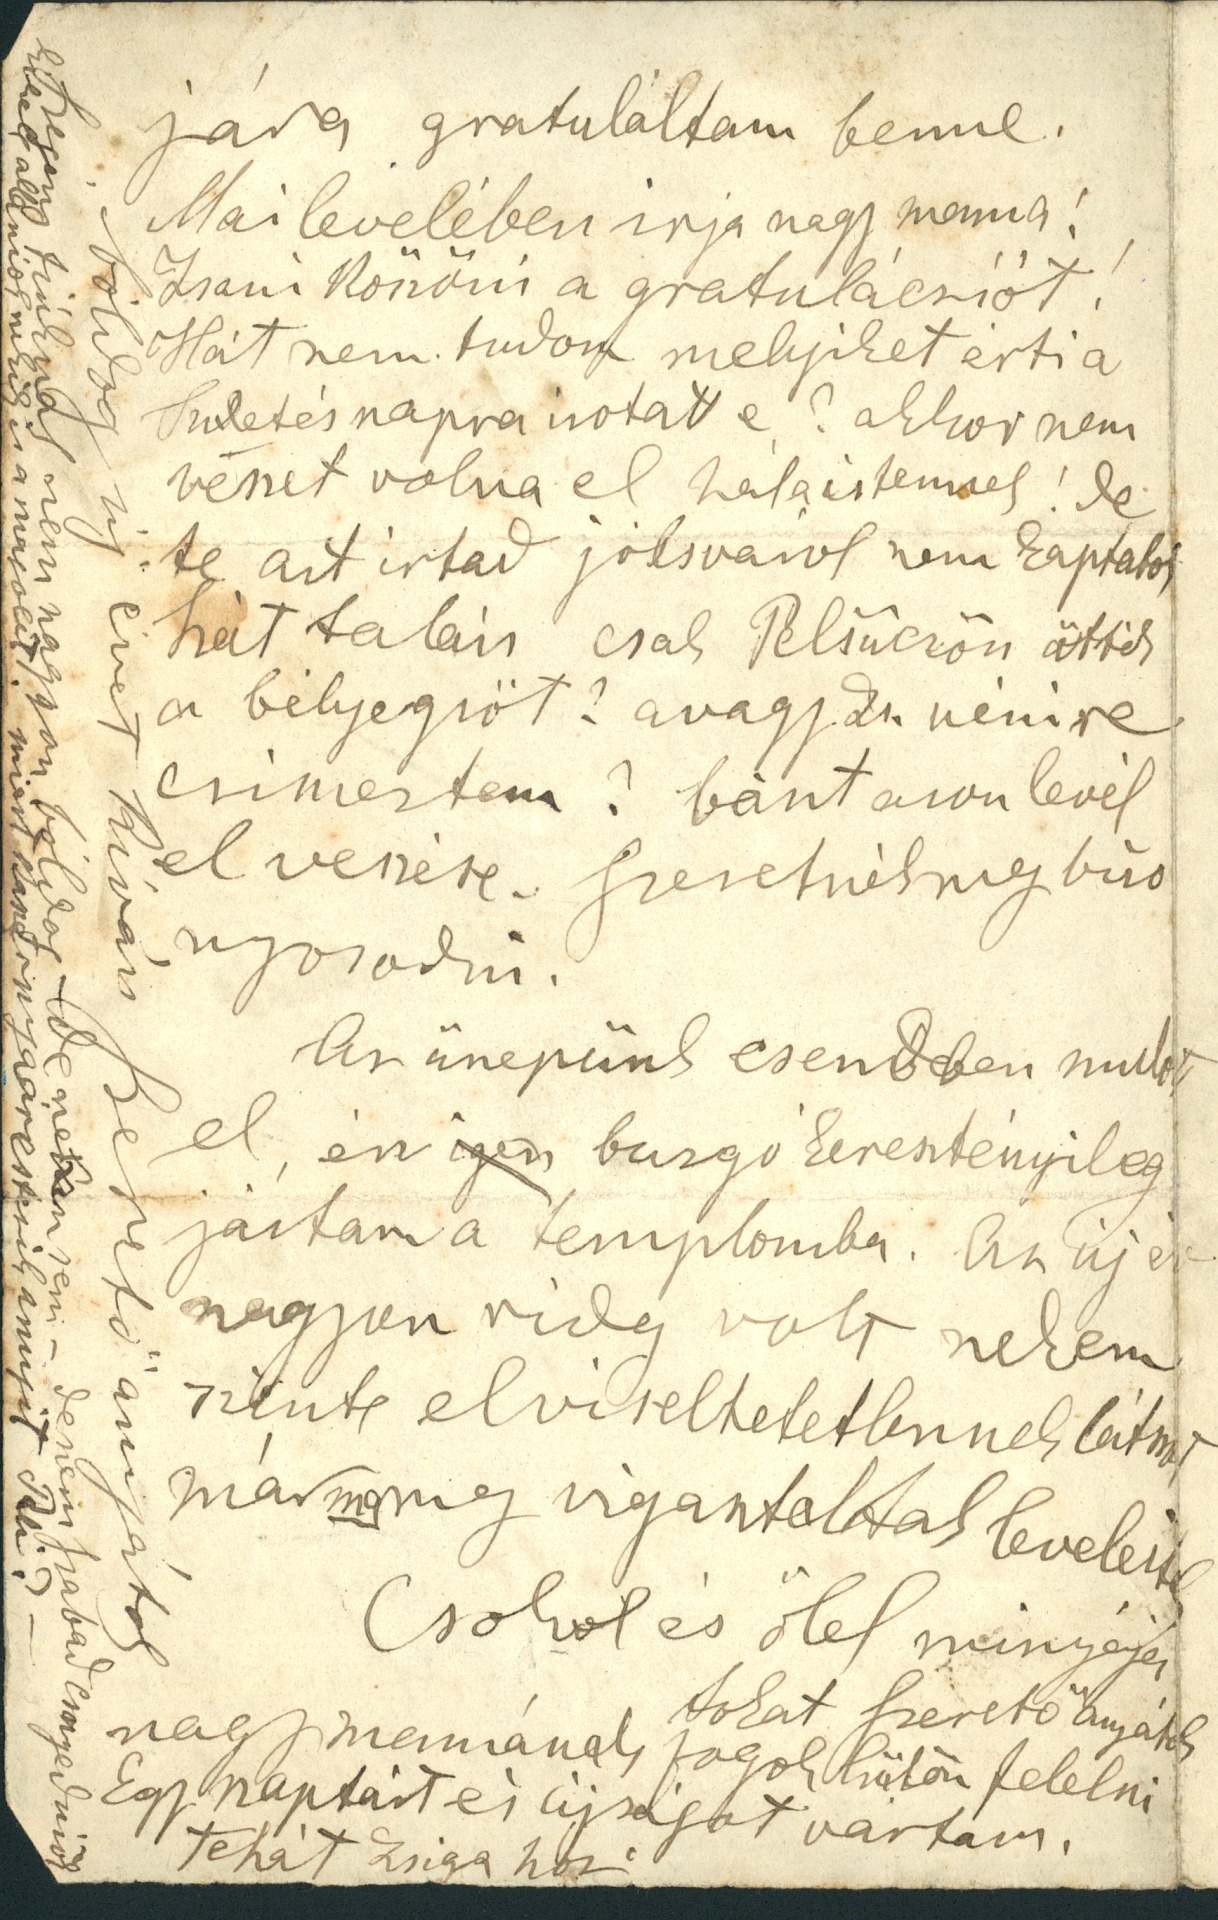 jára gratuláltam benne.
Mai levelében irja nagy mama!
Zsani Köszöni a gratulácziót!
Hát nem tudom melyiket érti a
Születés napra irotat e,? akkor nem
veszet volna el hálaistennek! de
te azt irtad jolsvarol nem kaptatok
hát talán csak Pelsüczön ötték
a bélyegzöt? avagy Zs. nénire
czimeztem? bánt azon levél
el veszése. Szeretnék meg bizo
nyosodni.
Az ünepünk csendben mult
el, én igen buzgó keresztényileg
jártam a templomba. Az uj év
nagyon rideg volt nekem
szinte elviseltetetlennek látszot
már meg vigasztaltak leveleitek
Csokol és ölel minyája
tokat Szeretö anyátok
nagymamának fogok külön felelni
Egy naptárt és ujságot vártam.
Tehát Zsiga hoz.
boldog uj évet Kiván Szeretö anyátok